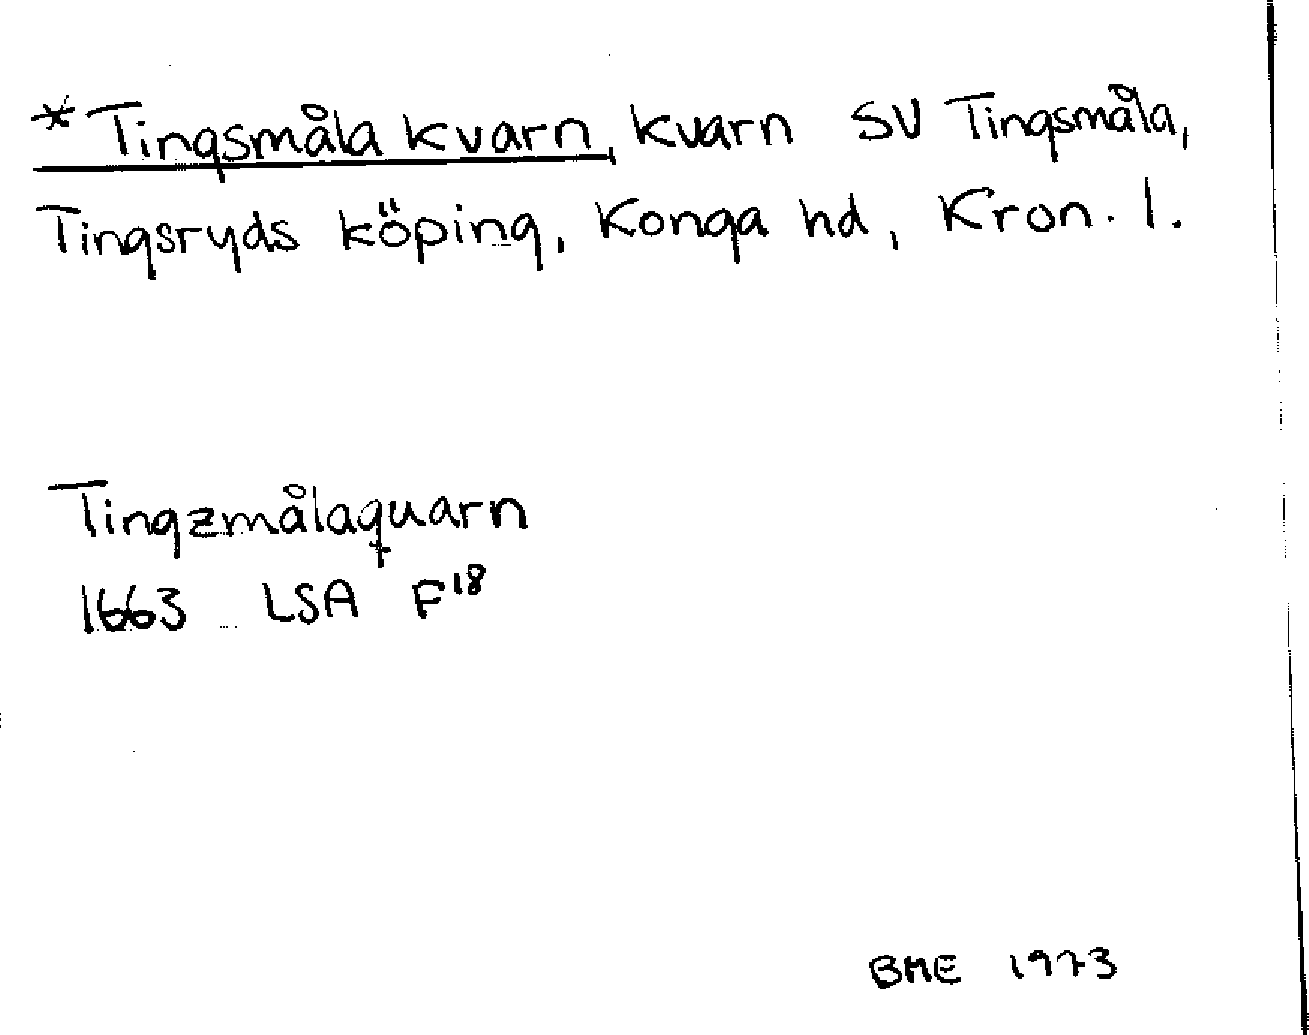 *Tingsmåla kvarn, kvarn SV Tingsmåla,
Tingsryds köping, Konga hd, Kron. l.
Tingzmålaquarn
1663 LSA F18
BME 1973